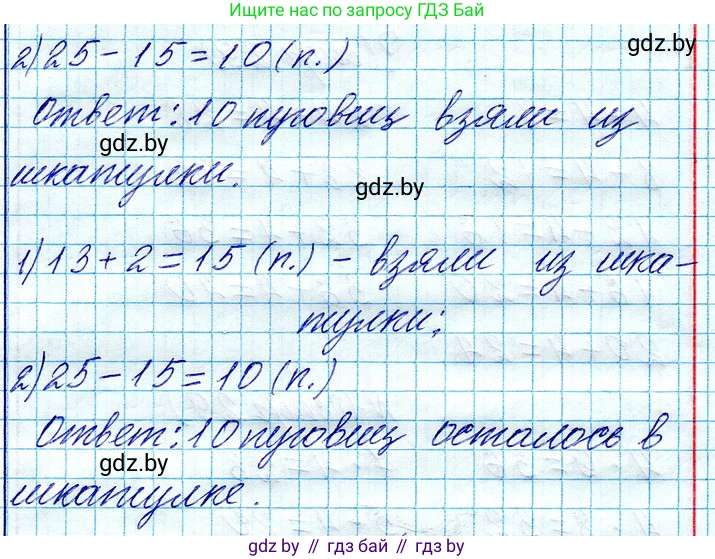 Ищите нас по запросу ГДЗ Бай
2) 25 - 15 = 10 (п.)
gdz.by
Ответ: 10 пуговиц взяли из
gdz.by
шкатулки.
gdz.by
1) 13 + 2 = 15 (п.) - взяли из шка-
тулки;
2) 25 - 15 = 10 (п.)
Ответ: 10 пуговиц осталось в
gdz.by
gdz.by
шкатулке.
gdz by // гдз бай // gdz by